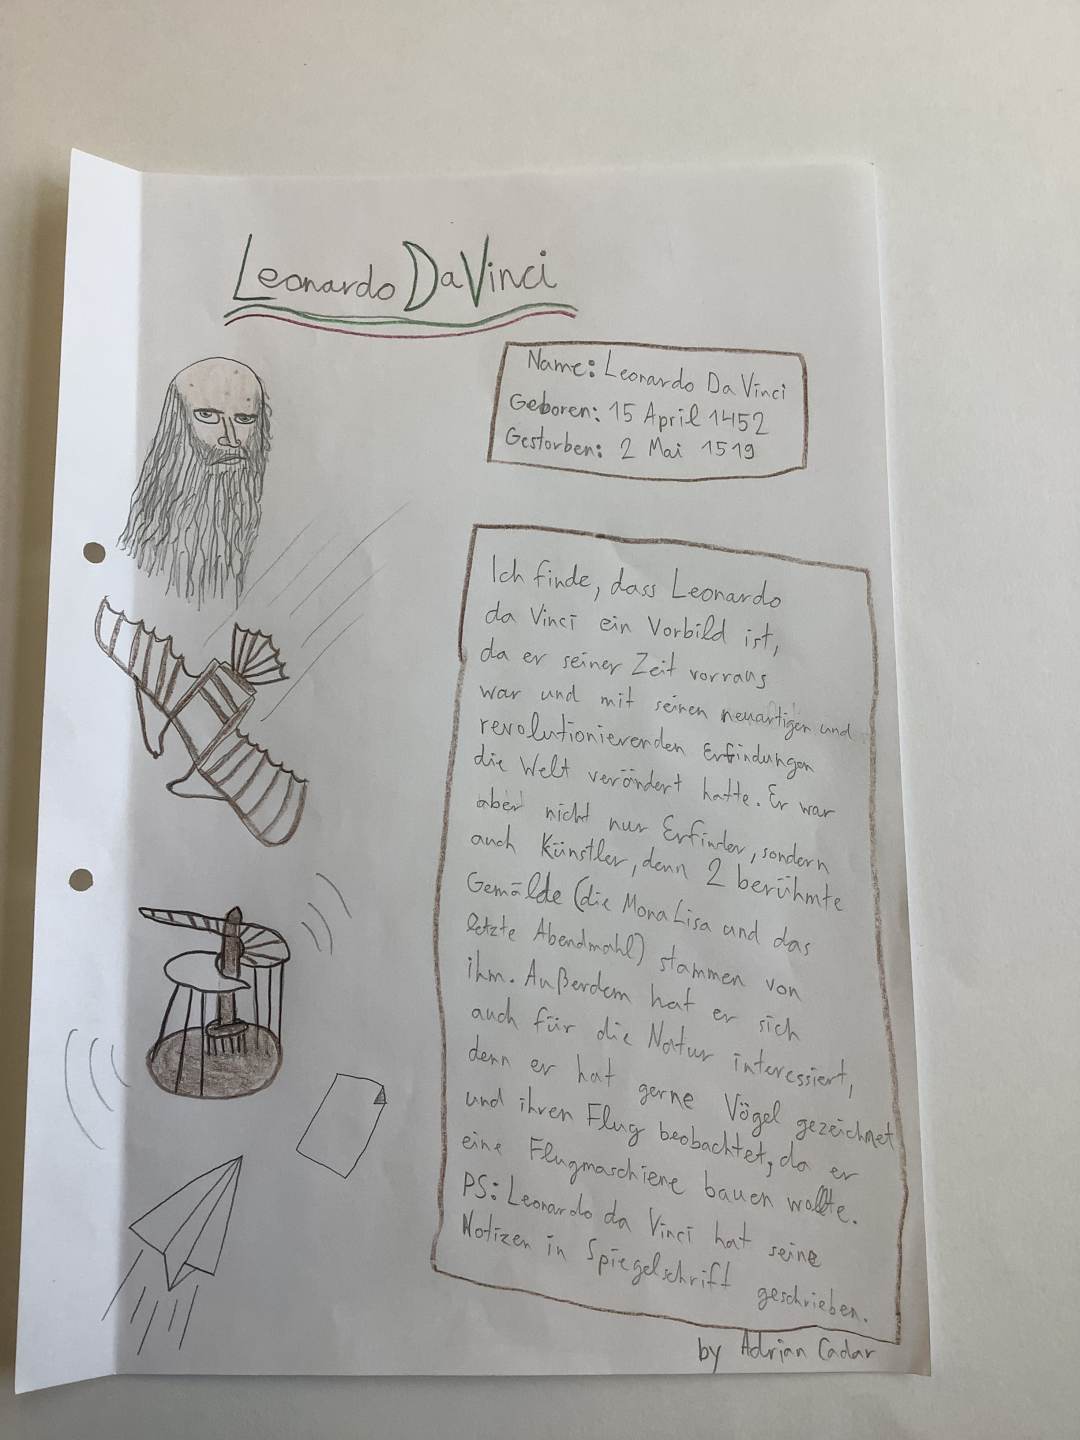 Leonardo Da Vinci
Name: Leonardo Da Vinci
Geboren: 15 April 1452
Gestorben: 2 Mai 1519
Ich finde, dass Leonardo
da Vinci ein Vorbild ist,
da er seiner Zeit vorraus
war und mit seinen neuartigen und
revolutionierenden Erfindungen
die Welt verändert hatte. Er war
aber nicht nur Erfinder, sondern
auch Künstler, denn 2 berühmte
Gemälde (die Mona Lisa und das
letzte Abendmahl) stammen von
ihm. Außerdem hat er sich
auch für die Natur interessiert,
denn er hat gerne Vögel gezeichnet
und ihren Flug beobachtet, da er
eine Flugmaschiene bauen wollte.
PS: Leonardo da Vinci hat seine
Notizen in Spiegelschrift geschrieben.
by Adrian Cadar